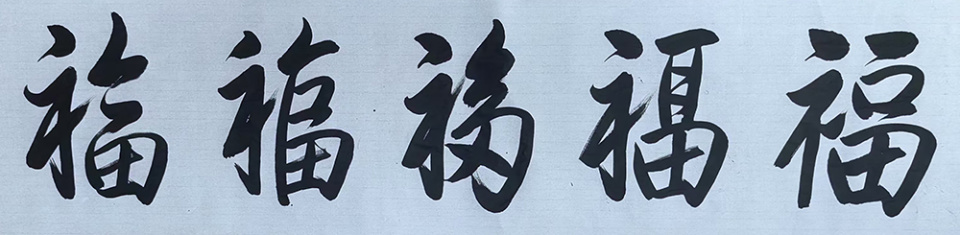 福福福福福